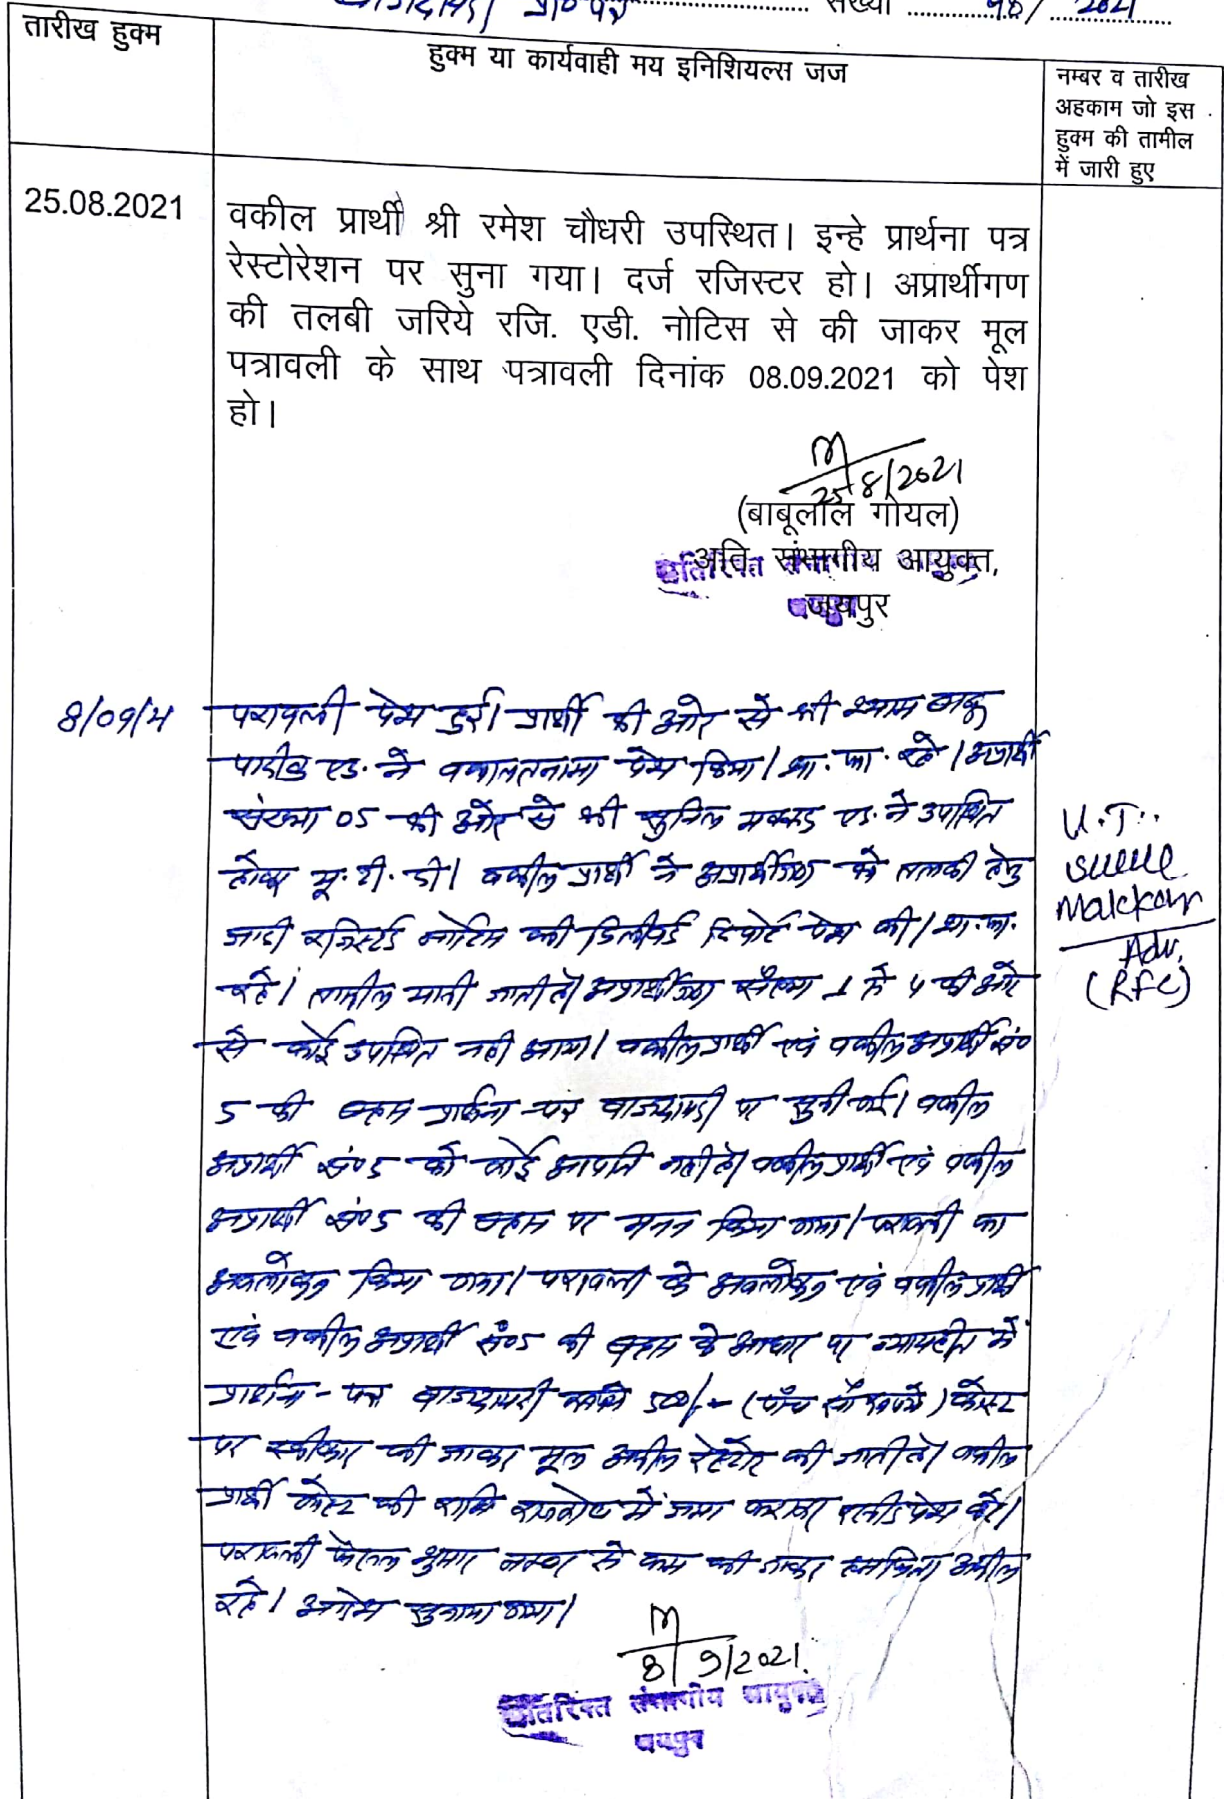 प्रा० पत्र संख्या 98/2021
तारीख हुक्म
हुक्म या कार्यवाही मय इनिशियल्स जज
नम्बर व तारीख
अहकाम जो इस
हुक्म की तामील
में जारी हुए
25.08.2021
वकील प्रार्थी श्री रमेश चौधरी उपस्थित। इन्हे प्रार्थना पत्र
रेस्टोरेशन पर सुना गया। दर्ज रजिस्टर हो। अप्रार्थीगण
की तलबी जरिये रजि. एडी. नोटिस से की जाकर मूल
पत्रावली के साथ पत्रावली दिनांक 08.09.2021 को पेश
हो।
25/8/2021
(बाबूलाल गोयल)
अति. संभागीय आयुक्त,
जयपुर
8/09/21
पत्रावली पेश हुई। प्रार्थी की ओर से श्री श्याम बाबू
पारीक एड. ने वकालतनामा पेश किया। शा. फा. रहे। अप्रार्थी
संख्या 05 की ओर से श्री सुनिल मक्कड एड. ने उपस्थित
होकर यू. टी. दी। वकील प्रार्थी ने अप्रार्थीगण को तलबी हेतु
जारी रजिस्टर्ड नोटिस की डिलीवर्ड रिपोर्ट पेश की। शा. फा.
रहे। तामील मानी जाती है। अप्रार्थीगण संख्या 1 से 4 की ओर
से कोई उपस्थित नही आया। वकील प्रार्थी एवं वकील अप्रार्थी सं०
5 की बहस प्रार्थना-पत्र बाजदायरी पर सुनी गई। वकील
अप्रार्थी सं० 5 को कोई आपत्ति नही है। वकील प्रार्थी एवं वकील
अप्रार्थी सं० 5 की बहस पर मनन किया गया। पत्रावली का
अवलोकन किया गया। पत्रावली के अवलोकन एवं वकील प्रार्थी
एवं वकील अप्रार्थी सं० 5 की बहस के आधार पर न्यायहित में
प्रार्थना-पत्र बाजदायरी 500/- (पाँच सौ रूपये) कोस्ट
पर स्वीकार की जाकर मूल अपील रेस्टोर की जाती है। वकील
प्रार्थी कोस्ट की राशि राजकोष में जमा कराकर रसीद पेश करे।
पत्रावली फैसल शुमार नम्बर से कम की जाकर अपील
रहे। आदेश सुनाया गया।
8/9/2021
अतिरिक्त संभागीय आयुक्त
जयपुर
U.T.
Malckar
Adv.